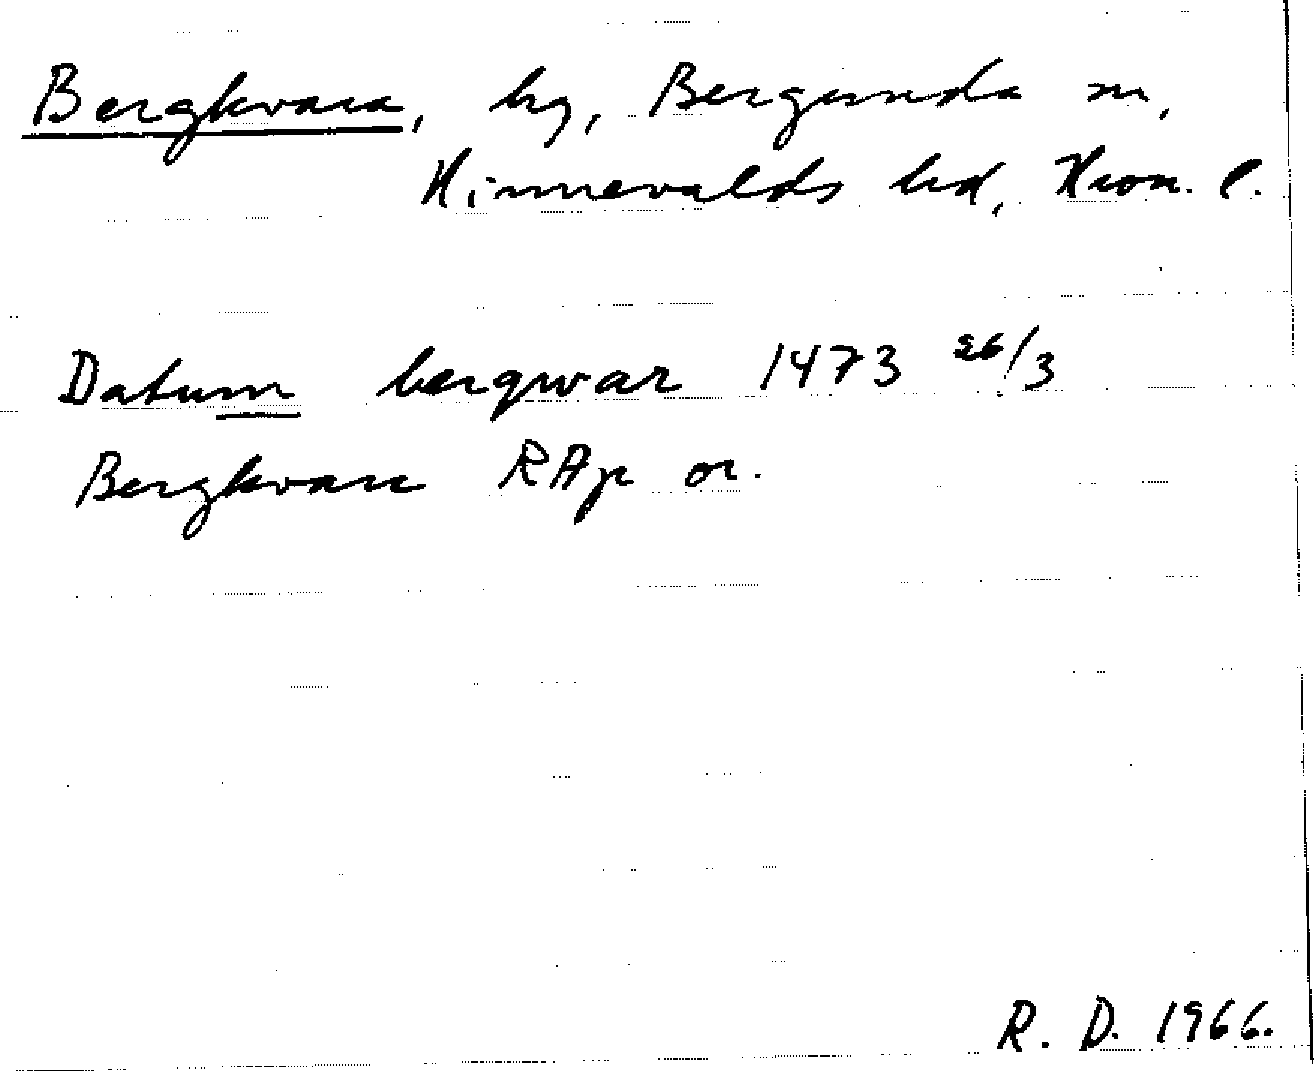 Bergkvara, by, Bergunda sn,
Kinnevalds hd, Kron. l.
Datum bergwar 1473 26/3
Bergkvara RAp or.
R. D. 1966.